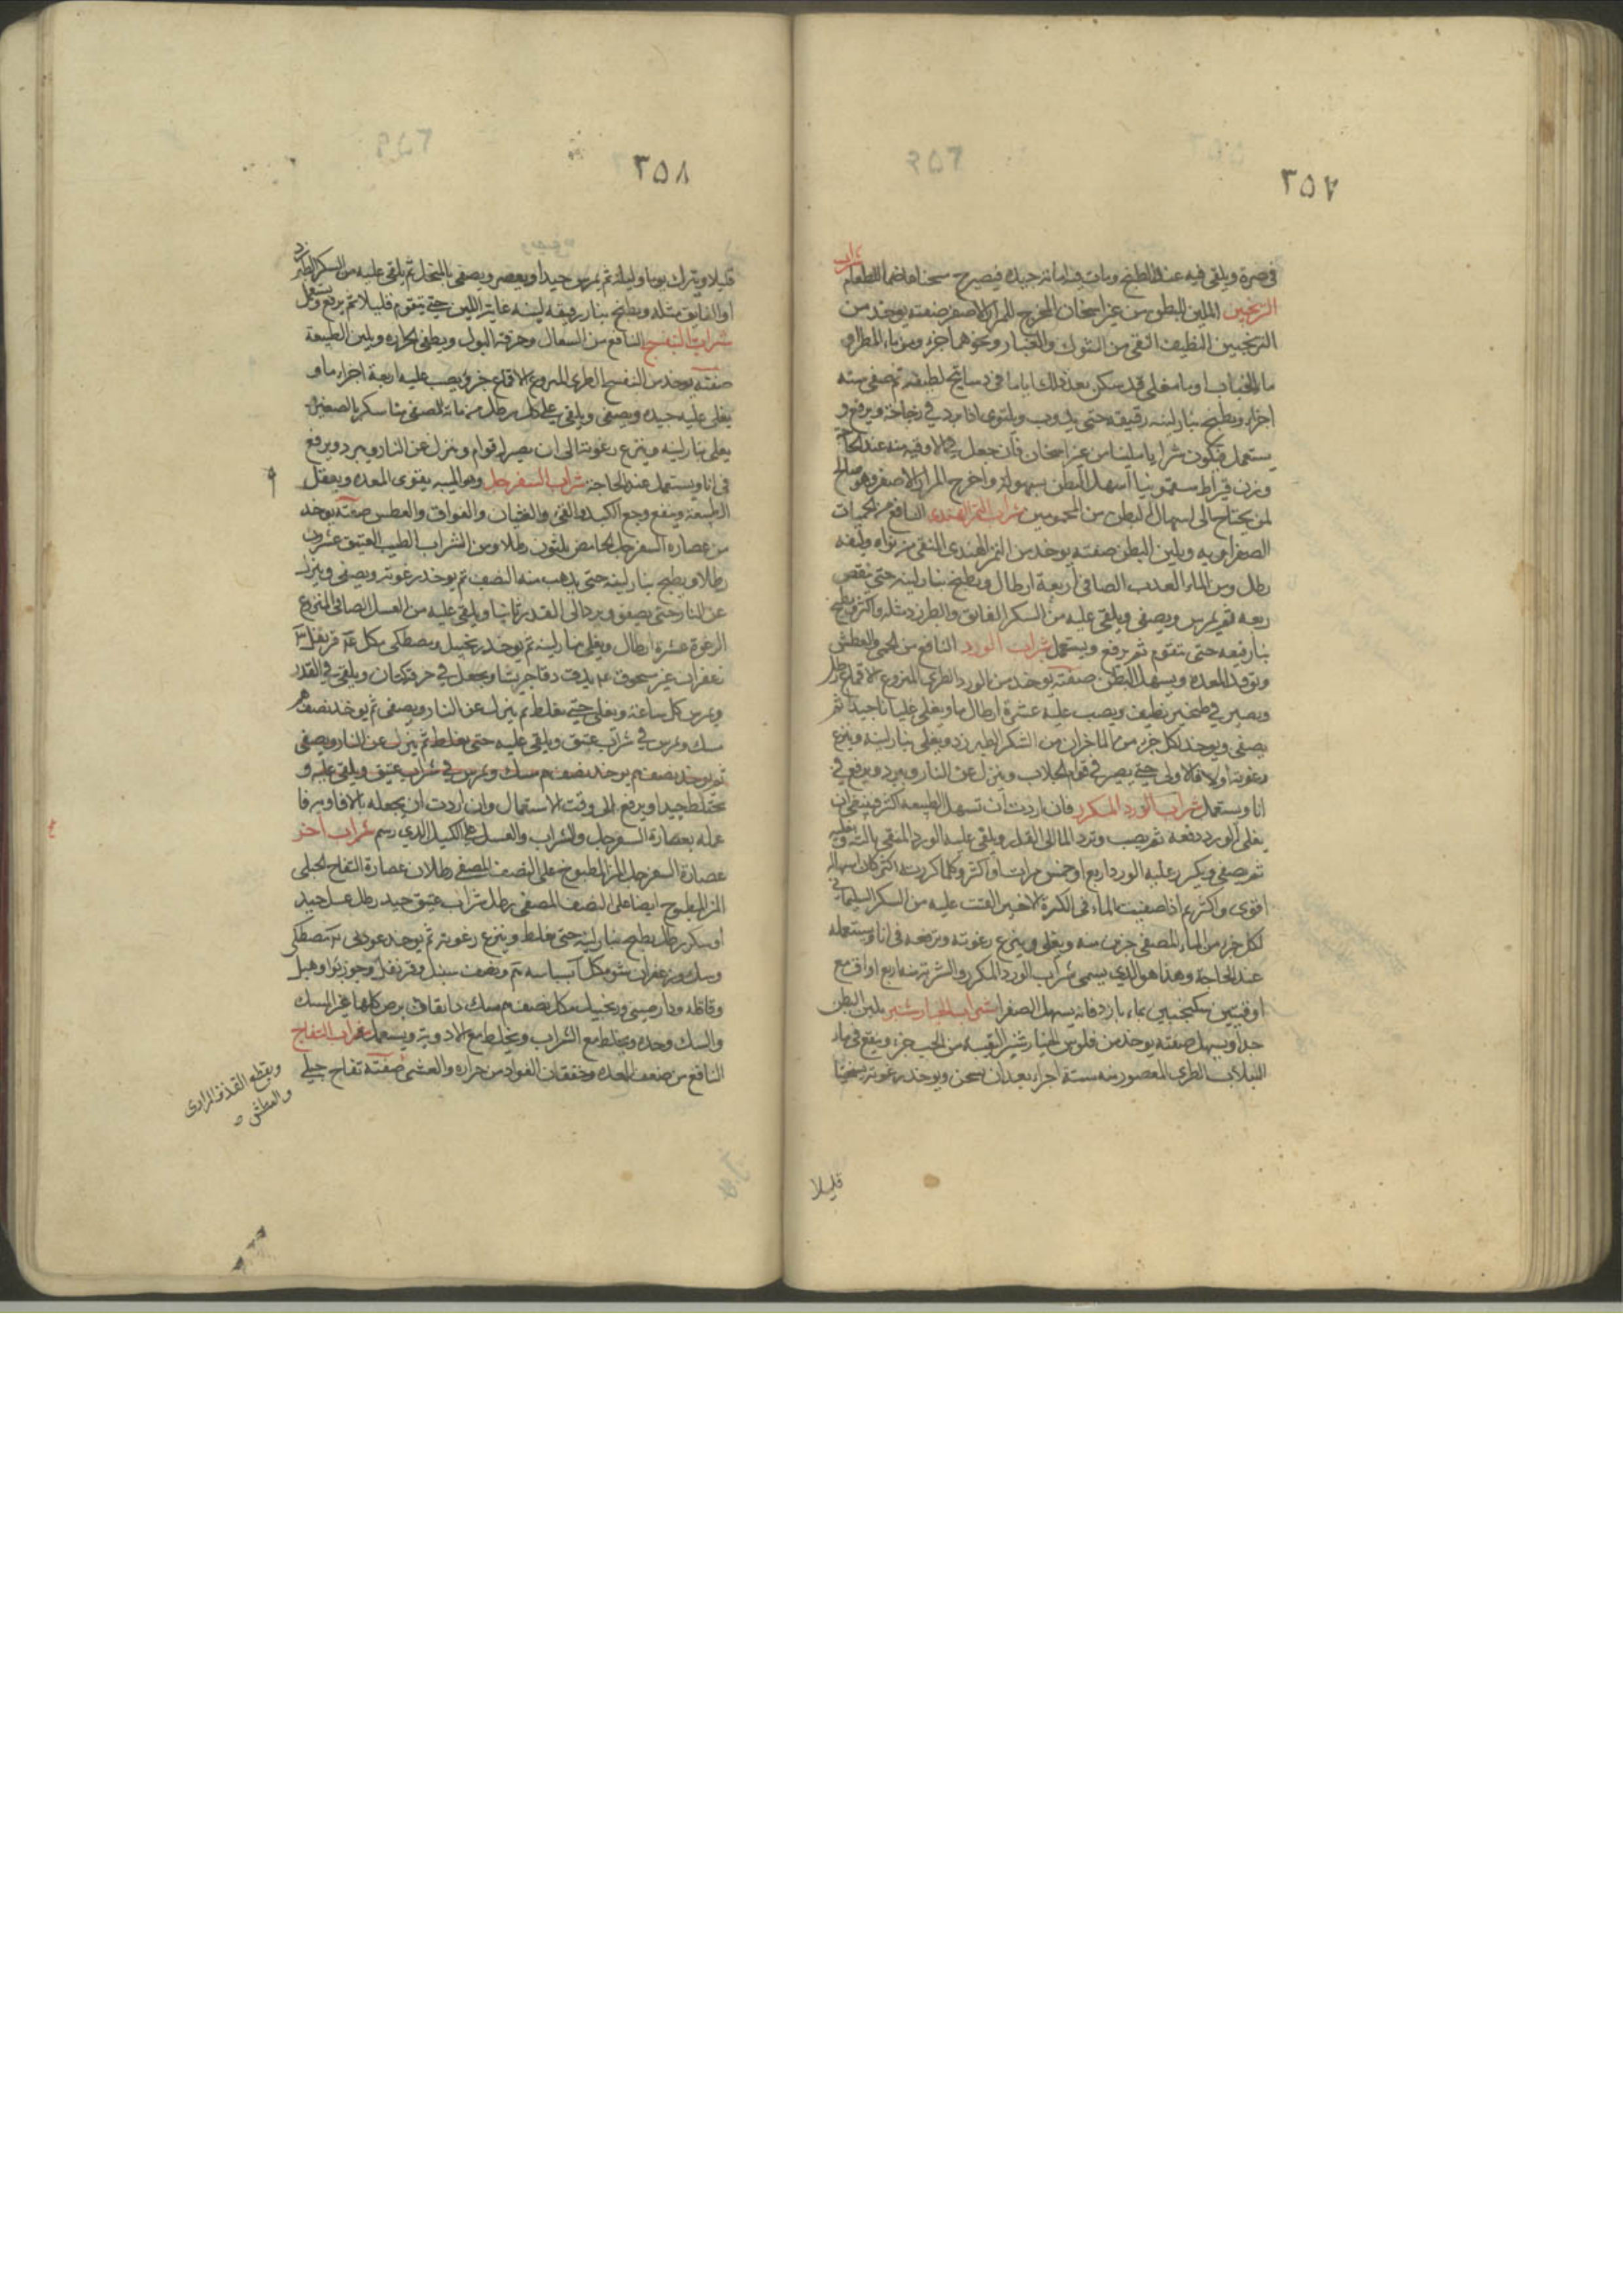 ٣٥٧
في صرة ويلقى فيه عند الطبخ ويمات فيه اماتة جيده فيصير مسخنا هاضما للطعام شراب
الترنجبين الملين للبطن من غير اسخان المخرج للمرار الاصفر صفته يوخذ من
الترنجبين النظيف النقى من الشوك والغبار ونحوهما جزء ومن ماء المطر او
ماء مغلى قد سكن بعد ذلك اياما في دساتيج لطيفه ثم صفى ستة
اجزاء ويطبخ بنار لينه رقيقه حتى يذوب ويستوى اذا برد في زجاجة ويرفع و
يستعمل فيكون شرابا ملينا من غير اسخان فان جعل في الاوقيه منه عند الحاجة
وزن قيراط سقمونيا اسهل البطن بسهولة واخرج المرار الاصفر وهو صالح
لمن يحتاج الى اسهال البطن من المحمومين شراب التمر الهندى النافع من الحميات
الصفراويه ويلين البطن صفته يوخذ من التمر الهندى المنقى من نواه وليفه
رطل ومن الماء العذب الصافى اربعة ارطال ويطبخ بنار لينه حتى ينقص
ربعه ثم يمرس ويصفى ويلقى عليه من السكر الفايق والطبرزد مثله واكثر ويطبخ
بنار رفيعه حتى يتقوم ثم يرفع ويستعمل شراب الورد النافع من الحمى والعطش
وتوقد المعده ويسهل البطن صفته يوخذ من الورد الطرى المنزوع الاقماع رطل
ويصير في طنجير نظيف ويصب عليه عشرة ارطال ماء ويغلى غليانا جيدا ثم
يصفى ويوخذ لكل جزء من الماء جزان من السكر الطبرزد ويغلى بنار لينه وينزع
رغوته اولا فاولا حتى يصير في قوام الجلاب وينزل عن النار ويبرد ويرفع في
انا ويستعمل شراب الورد المكرر فان اردت ان تسهل الطبيعه اكثر فينبغى ان
يغلى الورد دفعه ثم يصب وترد الماء الى القدر ويلقى عليه الورد المنقى ثالثة ويغليه
ثم يصفى ويكرر عليه الورد اربع او خمس مرات او اكثر وكلما كررت اكثر كان اسهاله
اقوى واكثر ثم اذا صفيت الماء فى الكرة الاخيره القيت عليه من السكر السليمانى
لكل جزء من الماء المصفى جزء منه ويغلى وينزع رغوته وترفعه فى انا ويستعمله
عند الحاجة وهذا هو الذى يسمى شراب الورد المكرر والشربة منه اربع اواق مع
اوقيتين سكنجبين بماء بارد فانه يسهل الصفرا شراب الخيار شنبر يلين البطن
جدا ويسهل صفته يوخذ من فلوس الخيار شنبر النقيه من الحب جزء وينقع فى ماء
اللبلاب الطرى المعصور منه ستة اجزاء بعد ان يسخن ويوخذ رغوته سخنا
قليلا
٣٥٨
قليلا ويترك يوما وليلة ثم يمرس جيدا ويعصر ويصفى بالمنخل ثم يلقى عليه من السكر الطبرزد
او الفايق مثله ويطبخ بنار رقيقه لينه غاية اللين حتى يتقوم قليلا ثم يرفع ويستعمل
شراب البنفسج النافع من السعال وحرقة البول ويطفى الحراره ويلين الطبيعة
صفته يوخذ من البنفسج الطرى المنزوع الاقماع جزء ويصب عليه اربعة اجزاء ماء و
يغلى غليه جيده ويصفى ويلقى على كل رطل من مائه المصفى منا سكر بالصغير
يغلى بنار لينه وينزع رغوته الى ان يصير له قوام وينزل عن النار ويبرد ويرفع
فى انا ويستعمل عند الحاجة شراب السفرجل وهو الميبه يقوى المعده ويعقل
الطبيعة وينفع وجع الكبد والقئ والغثيان والفواق والعطس صفته يوخذ
من عصارة السفرجل الحامض ثلثون رطلا ومن الشراب الطيب العتيق عشرون
رطلا ويطبخ بنار لينه حتى يذهب منه النصف ثم يوخذ رغوته ويصفى وينزل
عن النار حتى يصفو ويرد الى القدر ثانيا ويلقى عليه من العسل الصافى المنزوع
الرغوة عشرة ارطال ويغلى بنار لينه ثم يوخذ زنجبيل ومصطكى من كل قرنفل
زعفران غير مسحوق يدق دقا جريشا ويجعل في خرقة كتان ويلقى في القدر
ويمرس كل ساعة ويغلى حتى يغلظ ثم ينزل عن النار ويصفى ثم يوخذ نصف
مسك ويمرس في شراب عتيق ويلقى عليه حتى يغلظ ثم ينزل عن النار ويصفى
ثم يوخذ نصف يوخذ نصف مسك ويمرس في شراب عتيق ويلقى عليه و
يختلط جيدا ويرفع الى وقت الاستعمال وان اردت ان يجعله بالافاويه فا
عمله بعصارة السفرجل والشراب والعسل على الكيل الذى رسم شراب اخر
عصارة السفرجل المز المطبوخ على النصف المصفى رطلان عصارة التفاح الجبلى
المز المطبوخ ايضا على النصف المصفى رطل شراب عتيق جيد رطل عسل جيد
او سكر رطل يطبخ بنار لينه حتى يغلظ وينزع رغوته ثم يوخذ عود نى مصطكى
وسك وزعفران من كل بسباسه ونصف سنبل وقرنفل وجوزبوا وهيل
وقاقله ودارصينى وزنجبيل من كل نصف مسك دانقان يرض كلها غير المسك
والسك وحده ويخلط مع الشراب ويخلط مع الادوية ويستعمل شراب التفاح
النافع من ضعف المعده وخفقان الفواد من حراره والعشى صفته تفاح جبلى
ويقطع القذف المرارى
والعطش